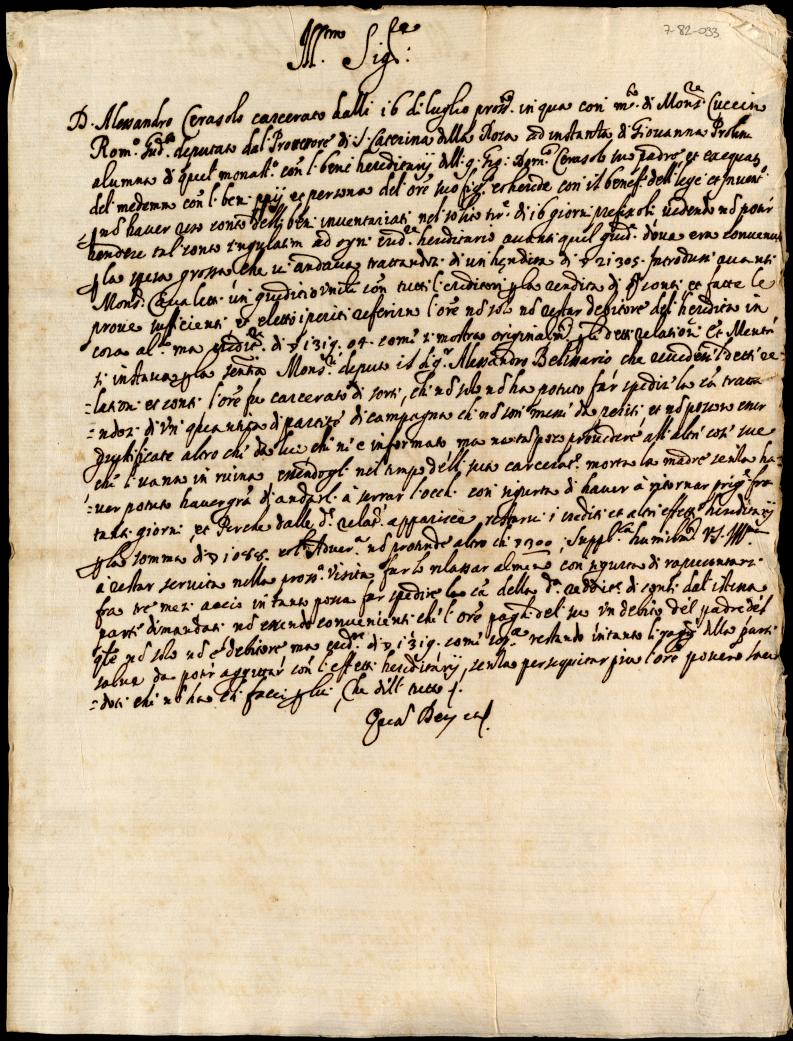 7-82-033
Ill.mo Sig.re
D. Alessandro Cerasolo carcerato dalli 16 di luglio pross. in qua con m.to di Mons.re Cuccin
Rom.o Giud.e deputato dal Protettore di S. Caterina della Rosa ad instantia di Giovanna
alumna di quel monast.o con l. beni hereditarij dell. q. Cerasolo suo padre, et exequat.
del medemo con l. beni pprij et persona del ore suo fig. et herede con il benef. dell. lege et Invent.
p nō haver reso conto delli beni inventariati nel solito tir. di 16 giorni prefissoli vedendo nō poter
rendere tal conto singulatim ad ogni cred.re hereditario avanti quel giud. dova era convenuto
p la spesa grossa che vi andava trattandosi di un heredita di 2130 introdusse avanti
Mons. Cavaletti un giuditio univle con tutti l. creditori p la rendita di conti et fatte le
prove sufficienti et eletti i periti referirno l'ore nō solo nō restar debitore del heredita in
cosa al. ma credit.re di 1319. 04. come si mostra originalm. p le dette relation. Et Mentre
instava p la sentia Mons.re deputò il sig.r Alessandro Belissario che revedesse dette re-
=lationi et conti l'ore fu carcerato di sorti, chi nō solo nō ha potuto far spedir la cā tratta
=ndosi di un quantità di partite di campagna chi nō son messi da periti et nō possono esser
giustificate altro chi da lui chi ni e informato ma ne tāpoco provedere all'altri cose sue
chi l. vanno in ruina, essendogli nel tempo dell. sua carcerat.e morta la madre senza ha
ver potuto haver grā di andarl. à serrar l'occh. con sigurtà di haver à ritornar prig. fra
tanti giorni, et Perche dalle d. relat. apparisce restarsi i crediti et altri effetti hereditarij
p la somma di 1088. Aver.a nō pretende altro chi 300, Suppl.ca humilm. V.S. Ill.ma
à restar servita nella pross. visita farlo relassar almeno con sigurtà di rapresentarsi
fra tre mesi acciò in tanto possa far spedire la cā della d.a reddit. di conti dal istessa
parte dimandati nō essendo conveniente chi l'ore paghi del suo un debito del padre del
qle nō solo nō è debitore ma cred.re di 1319. come sop.a restando intanto l. raggioni della parti
salve da poter aggiutar con l. effetti hereditarij, senza persequitar piu l'ore povero sace
=doti chi nō ha chi facci p lui, Che dell. tutto
Quas Deus